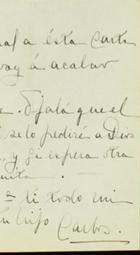 a ésta carta
voy á acabar
Ojalá que el
se lo pediré a Dios
y si espera otra
ti todo mi
hijo Carlos.